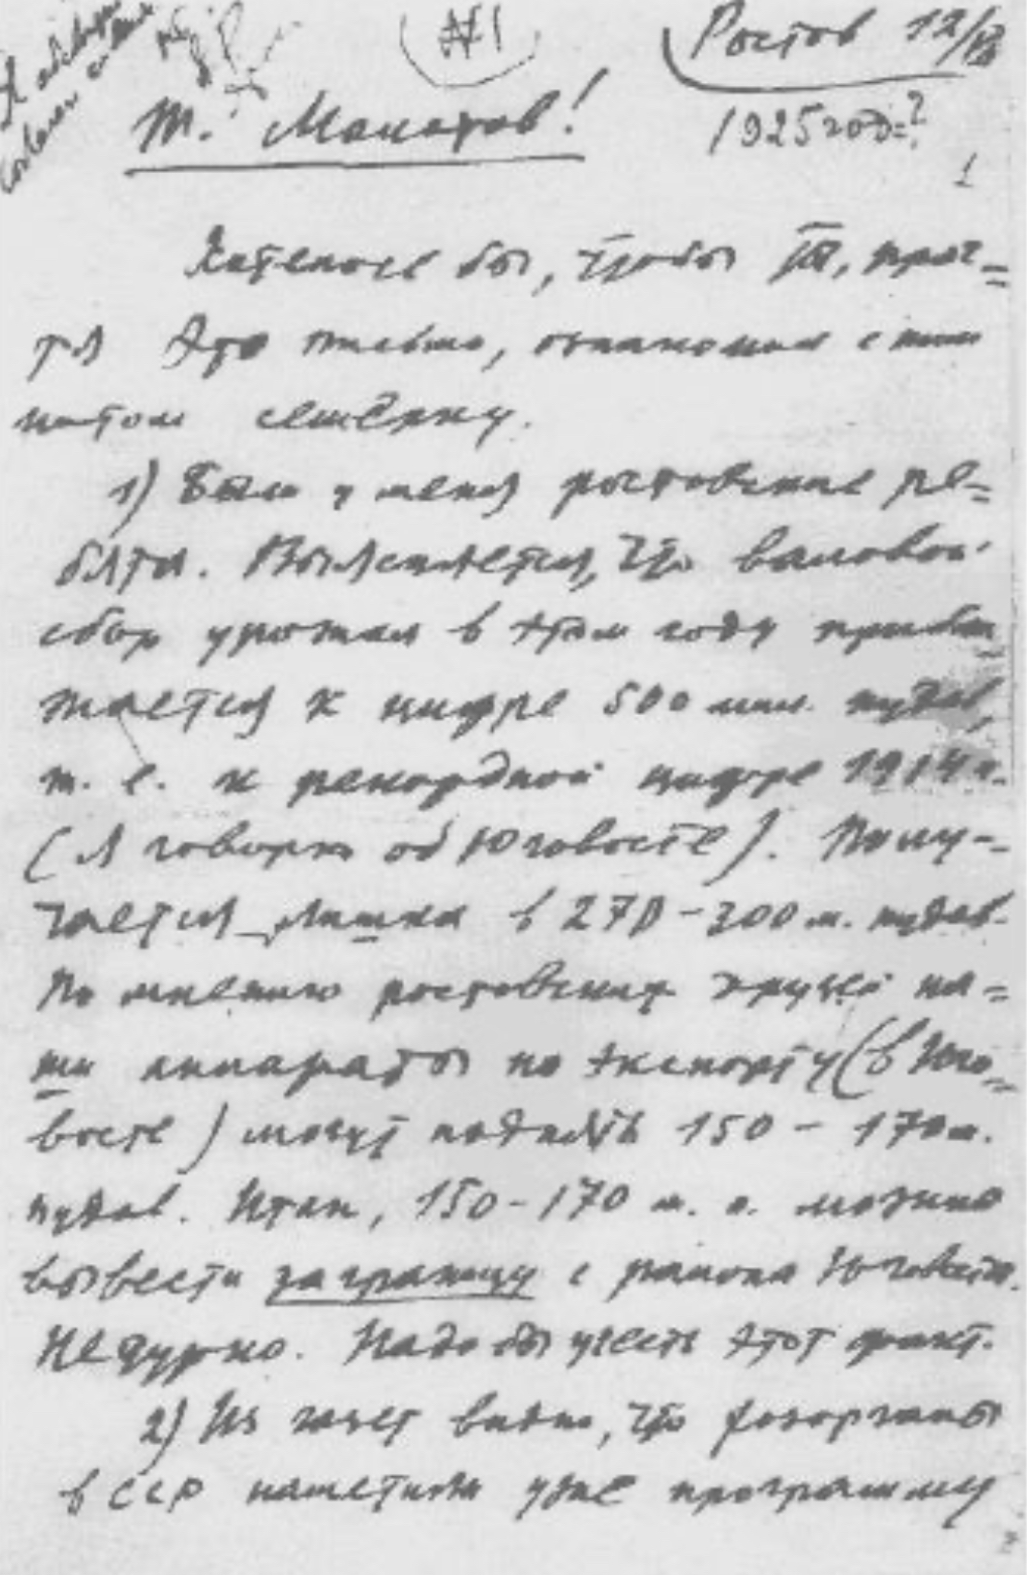 №1
Ростов 12/VII
т. Молотов!
1925 год=?
1
Хотелось бы, чтобы Вы, проч=
тя это письмо, ознакомили с ним
потом семёрку.
1) Были у меня ростовские ре=
бята. Выясняется, что валовой
сбор урожая в этом году прибли=
жается к цифре 500 мил. пудов,
т. е. к рекордной цифре 1914 г.
(я говорю об Юговосте). Полу-
чается лишка в 270-300 м. пудов.
По мнению ростовских друзей на=
ши аппараты по экспорту (в Юго=
восте) могут поднять 150-170 м.
пудов. Итак, 150-170 м. п. можно
вывести за границу с района Юговоста.
Недурно. Надо бы учесть этот факт.
2) Из газет видно, что хозорганы
в ССР наметили уже программу